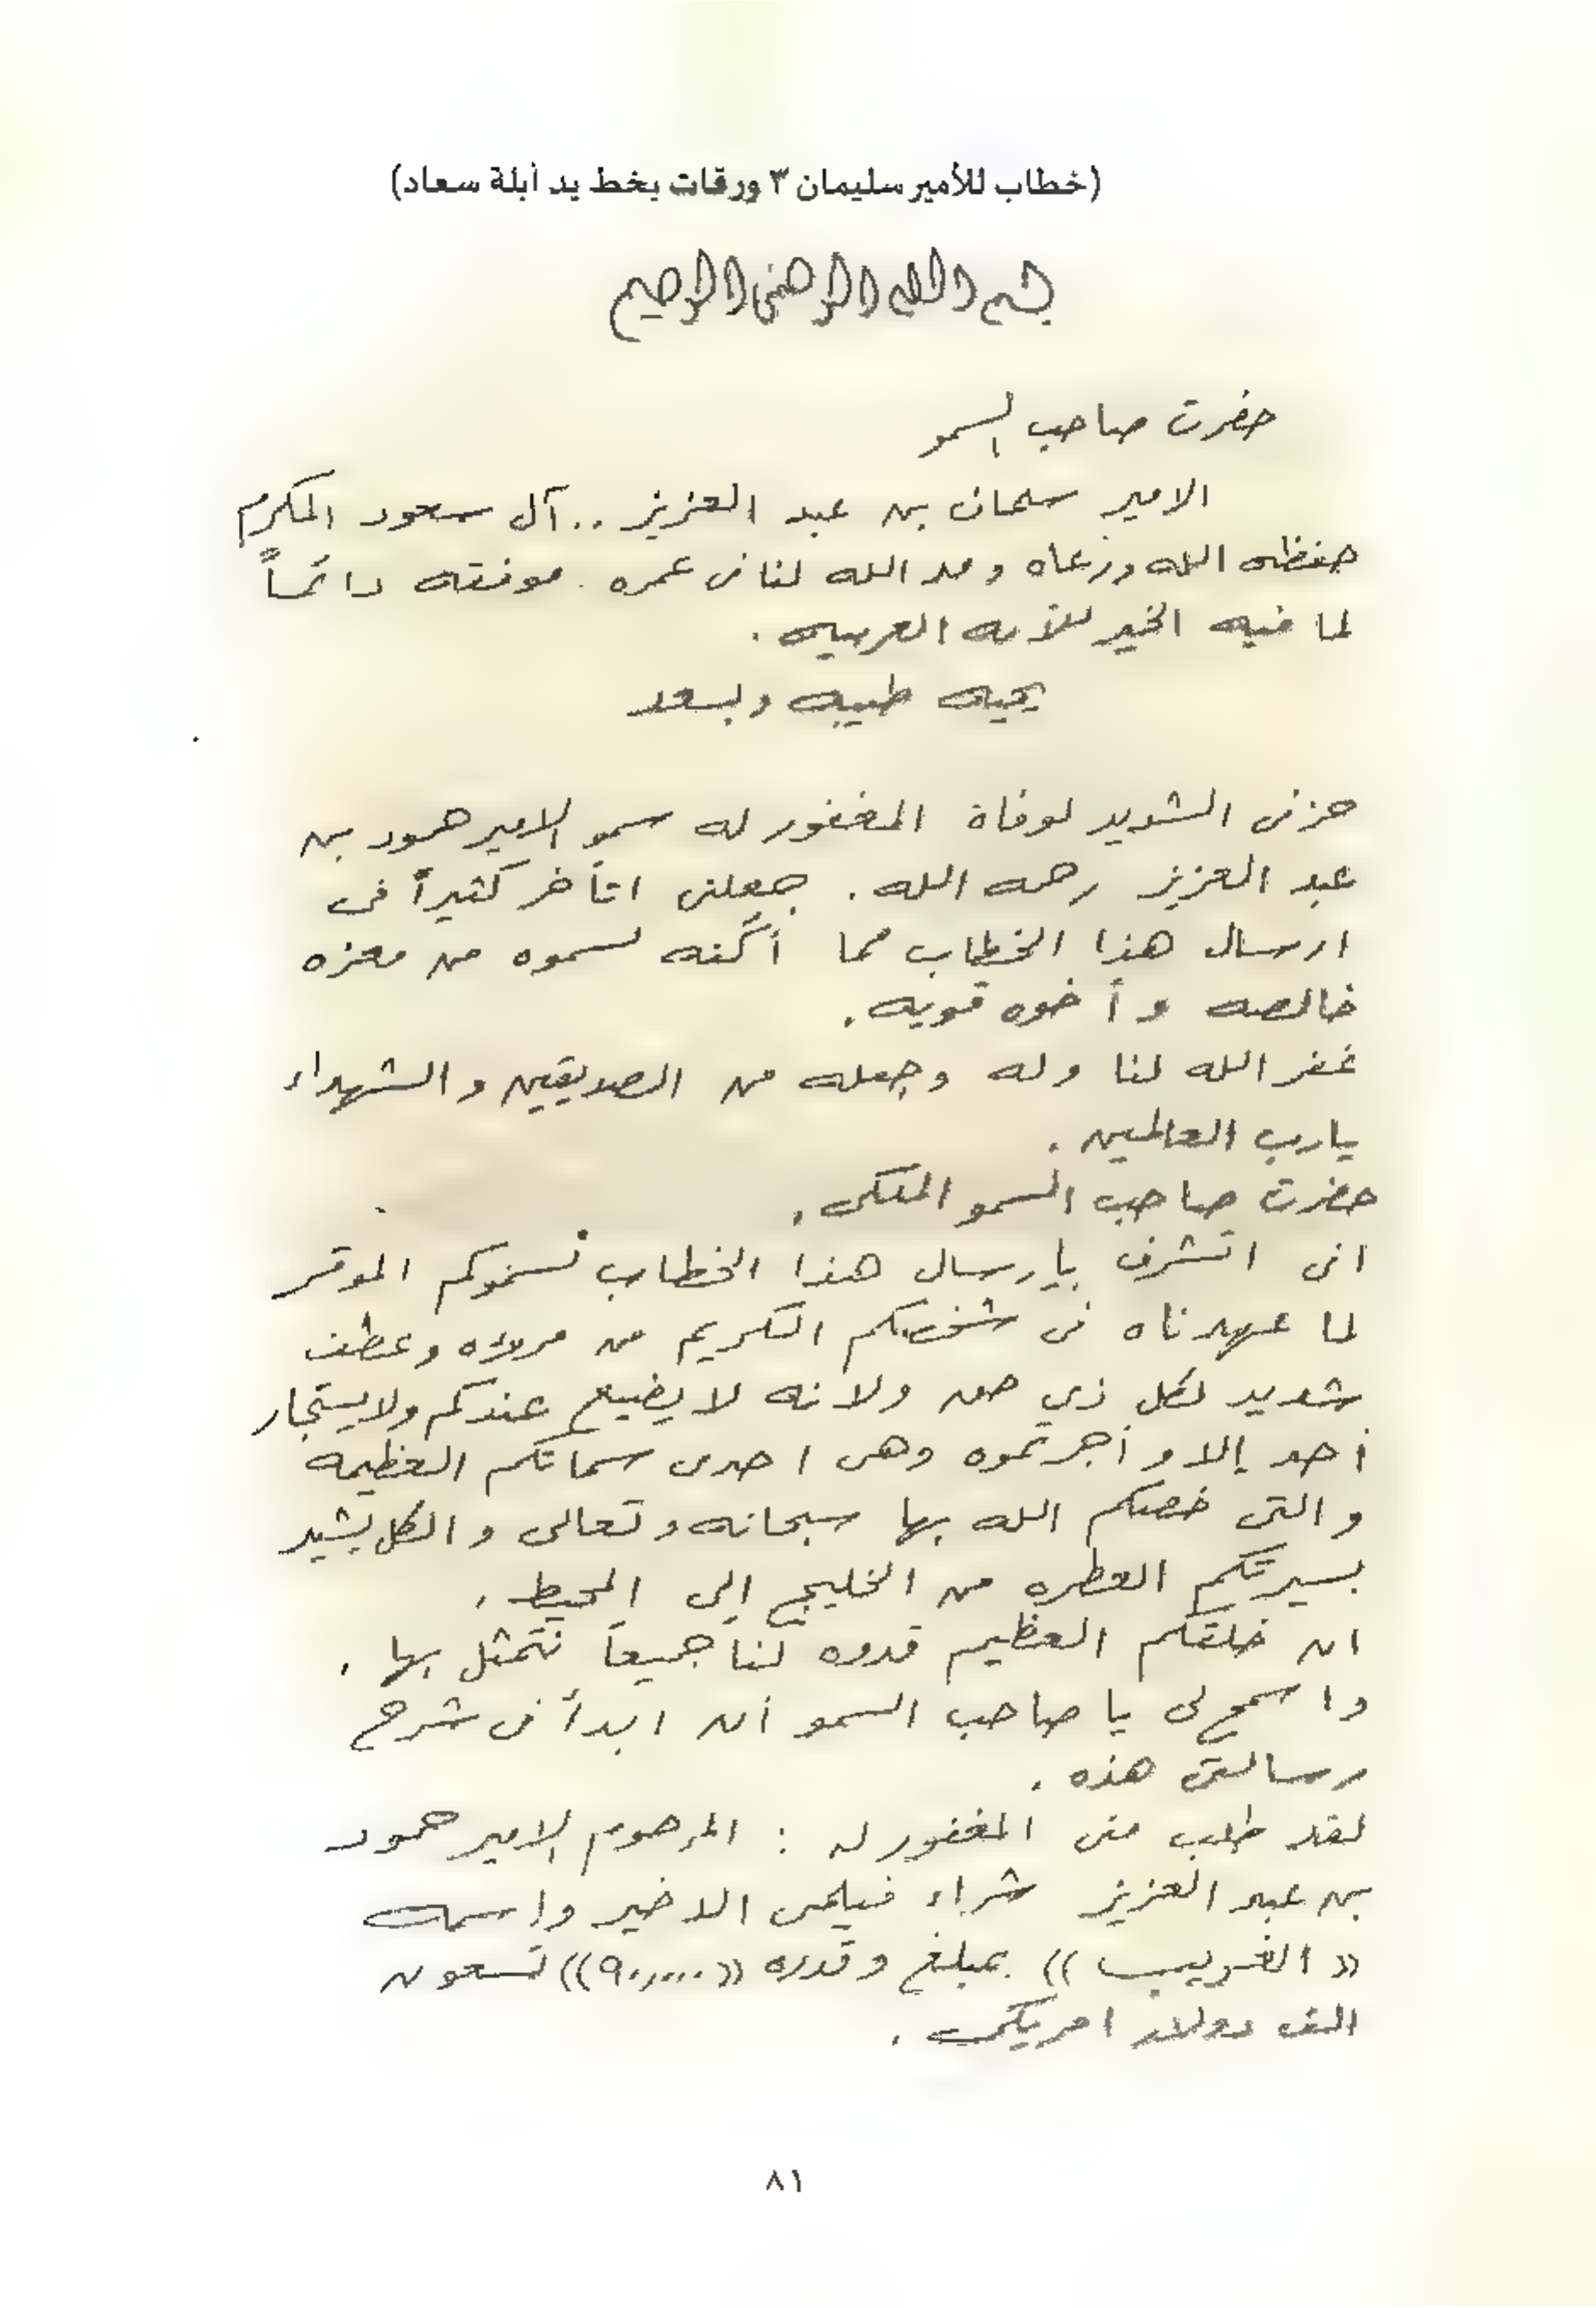 (خطاب للأمير سليمان ٣ ورقات بخط يد أبلة سعاد)
بسم الله الرحمن الرحيم
حضرت صاحب السمو
الامير سلمان بن عبد العزيز .. آل سعود المكرم
حفظه الله ورعاه ومد الله لنا فى عمره . موفقه دائماً
لما فيه الخير للأمه العربيه .
تحيه طيبه وبعد
حزنى الشديد لوفاة المغفور له سمو الامير حمود بن
عبد العزيز رحمه الله . جعلنى اتأخر كثيراً فى
ارسال هذا الخطاب مما أكنه لسموه من معزه
خالصه وأخوه قويه .
غفر الله لنا وله وجعله من الصديقين والشهداء
يارب العالمين .
حضرت صاحب السمو الملكى .
انى اتشرف بإرسال هذا الخطاب لسموكم الموقر
لما عهدناه فى شخصكم الكريم من مروءه وعطف
شديد لكل ذي حق ولانه لا يضيع عندكم ولا يستجار
أحد إلا وأجرتموه وهى احدى سماتكم العظيمه
والتى خصكم الله بها سبحانه وتعالى والكل يشيد
بسيرتكم العطره من الخليج إلى المحيط .
ان خلقكم العظيم قدوه لنا جميعاً نتمثل بها .
واسمح لى يا صاحب السمو أن ابدأ فى شرح
رسالتى هذه .
لقد طلب منى المغفور له : المرحوم الامير حمود
بن عبد العزيز شراء فيلمى الاخير واسمه
« الغريب » بمبلغ وقدره «٩٠,٠٠٠» تسعون
الف دولار امريكى .
٨١